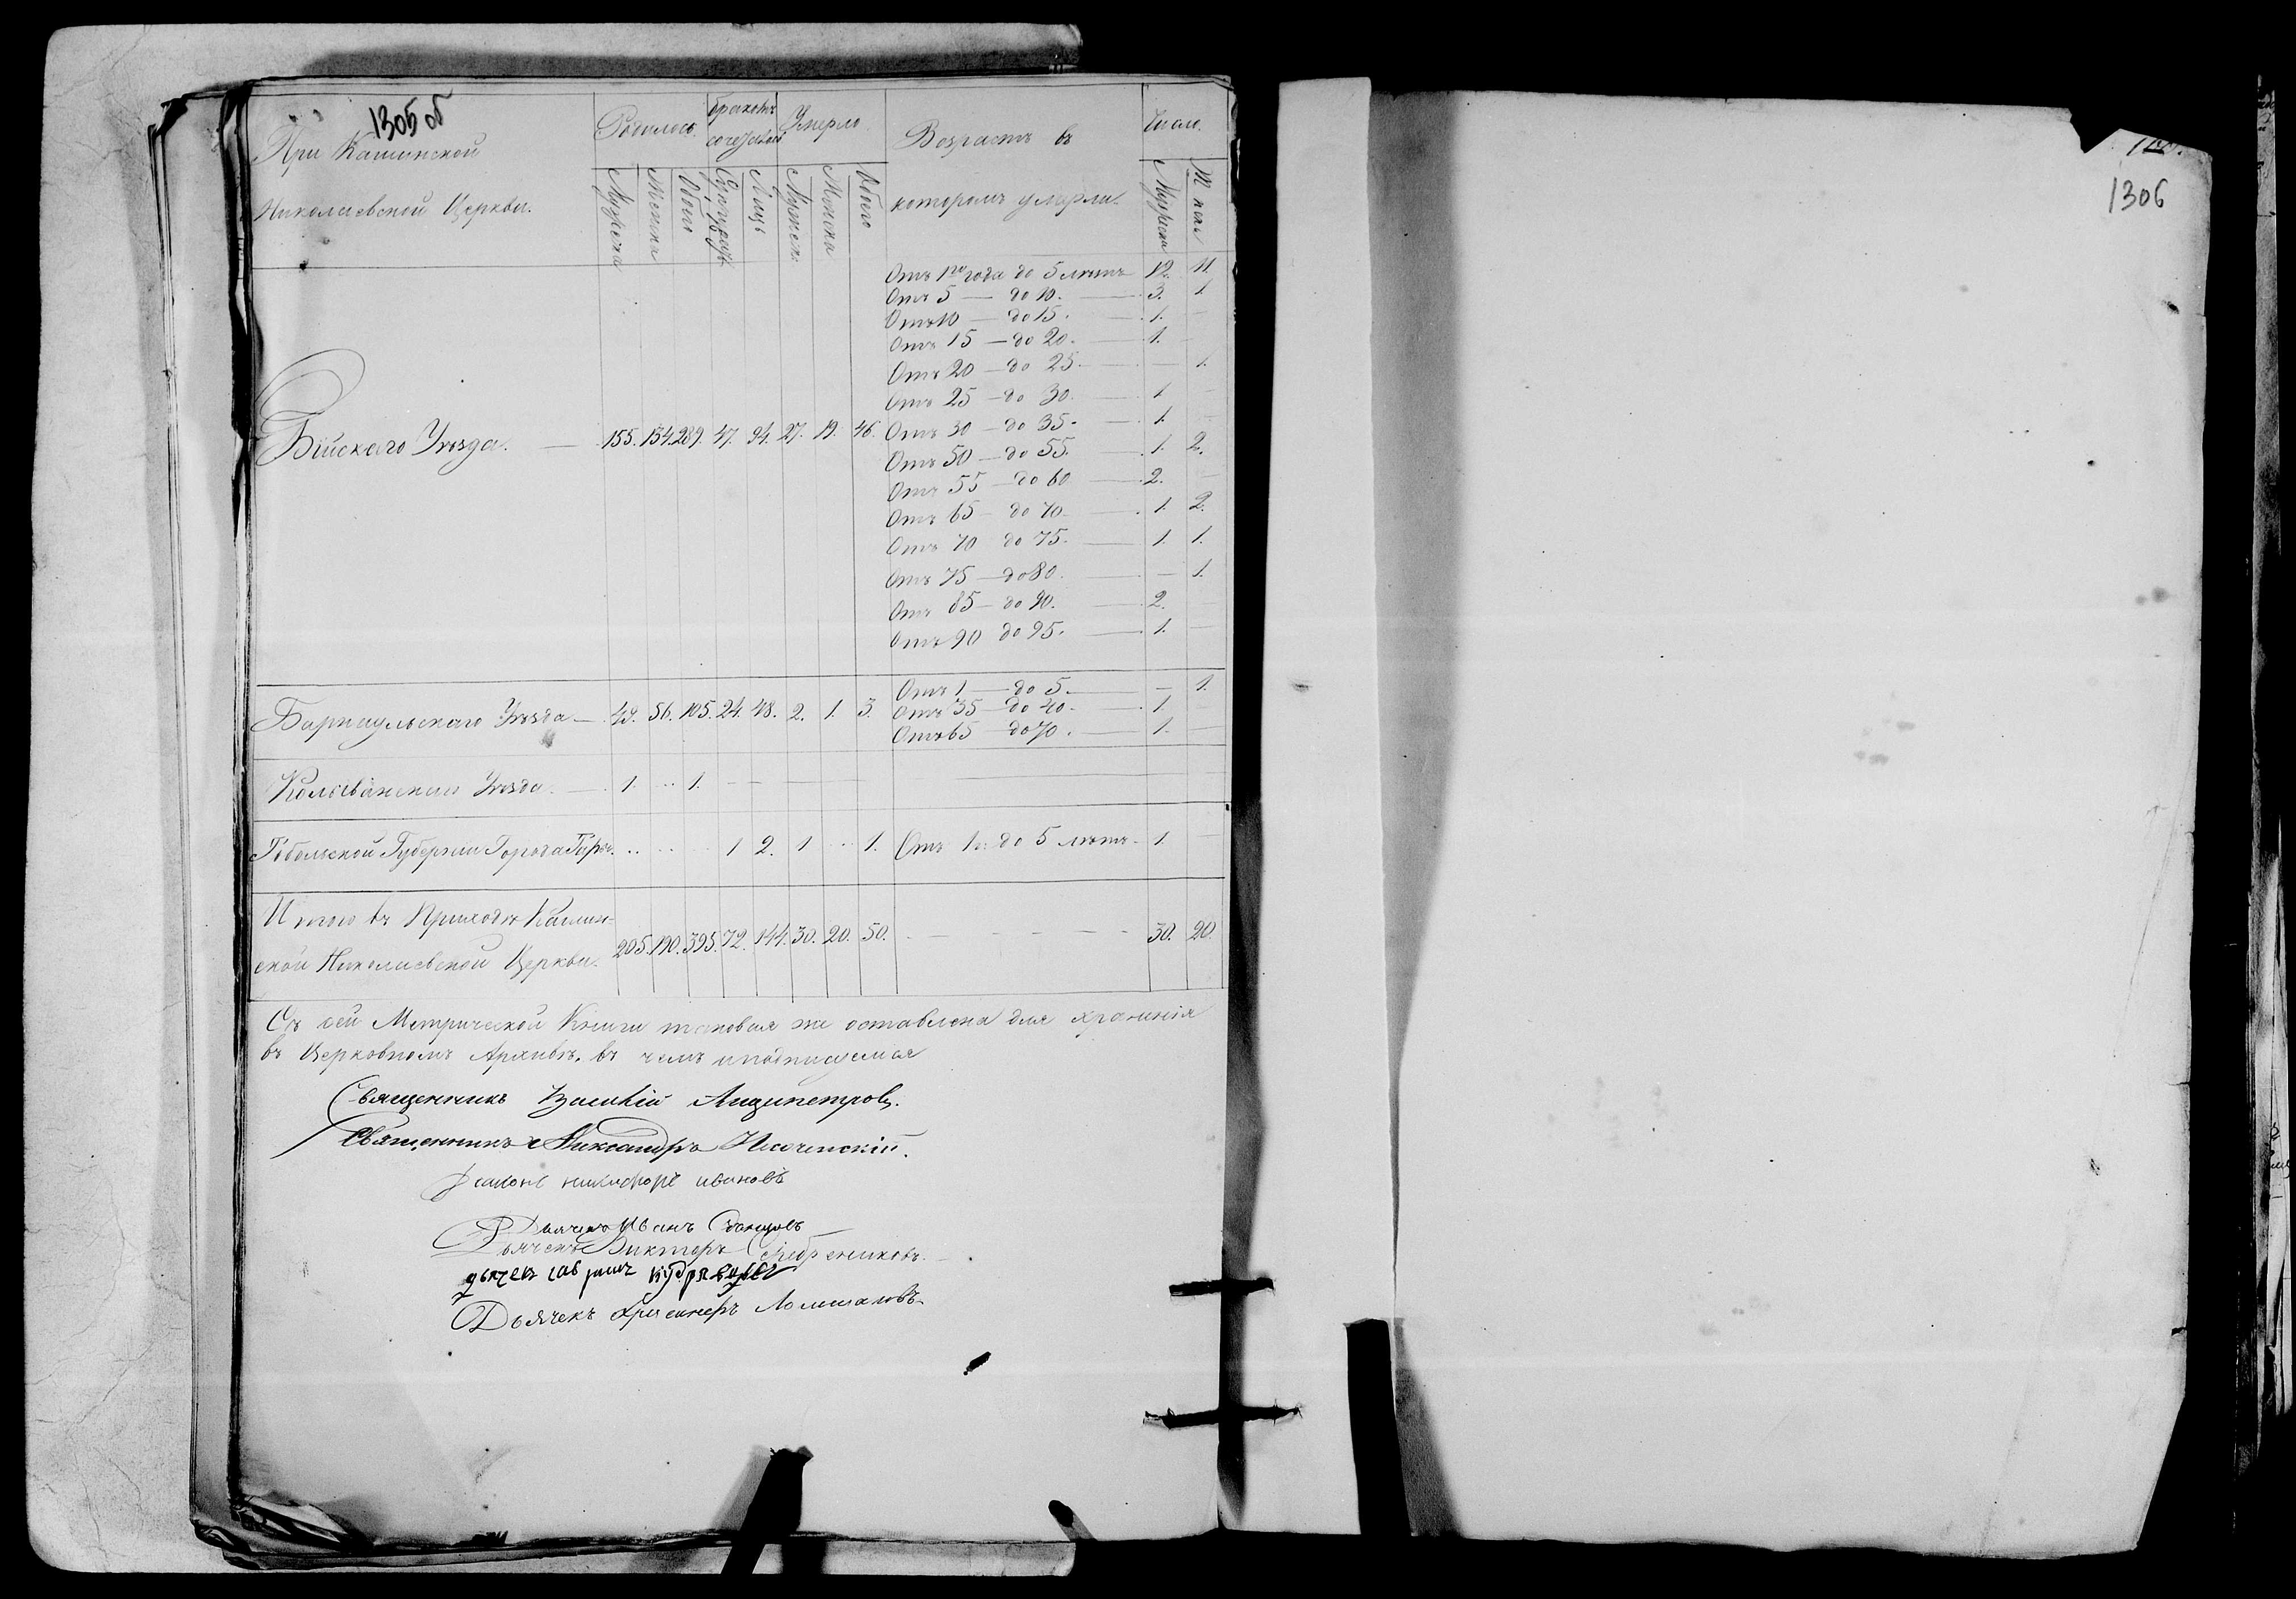 1305 об
При Кашинской
Николаевской Церкви.
Родилось
браковъ
сочетавш
Умерло
Возрастъ въ
которомъ умерли
Число
Мужеска
Женска
Обоего
Супружд
Лицъ
Мужеск
Женска
Обоего
Мужеска
Ж пола
Бійскаго Уѣзда. — 155. 134. 289. 47. 94. 27. 19. 46.
Отъ 1го года до 5 лѣтъ 12. 11.
Отъ 5 — до 10. — 3. 1.
Отъ 10 — до 15. — 1. —
Отъ 15 — до 20. — 1. —
Отъ 20 — до 25. — — 1.
Отъ 25 — до 30. — 1 —
Отъ 30 — до 35. — 1. —
Отъ 50 — до 55. — 1. 2.
Отъ 55 — до 60 — 2. —
Отъ 65 — до 70. — 1. 2.
Отъ 70 до 75. — 1. 1.
Отъ 75 — до 80. — — 1.
Отъ 85 — до 90. — 2. —
Отъ 90 до 95. — 1. —
Барнаульскаго Уѣзда — 49. 56. 105. 24. 48. 2. 1. 3.
Отъ 1 — до 5. — — 1.
Отъ 35 — до 40. — 1. —
Отъ 65 — до 70. — 1. —
Колыванскаго Уѣзда. — 1. .. 1. — — — — —
Тобольской Губерніи Города Тары. .. .. .. 1 2. 1 .. 1. Отъ 1го до 5 лѣтъ — 1. —
Итого въ Приходѣ Кашин-
ской Николаевской Церкви. 205. 190. 395. 72. 144. 30. 20. 50. — — — — — — 30. 20.
Съ сей Метрической Книги таковая же оставлена для храненія
въ Церковномъ Архивѣ, въ чемъ и подписуемся
Священникъ Василій
Священникъ Александръ
Діаконъ никифоръ ивановъ
Дьячекъ Иванъ
Дьячекъ Викторъ Серебрениковъ.
дьячек кудрявцев
Дьячекъ
1306